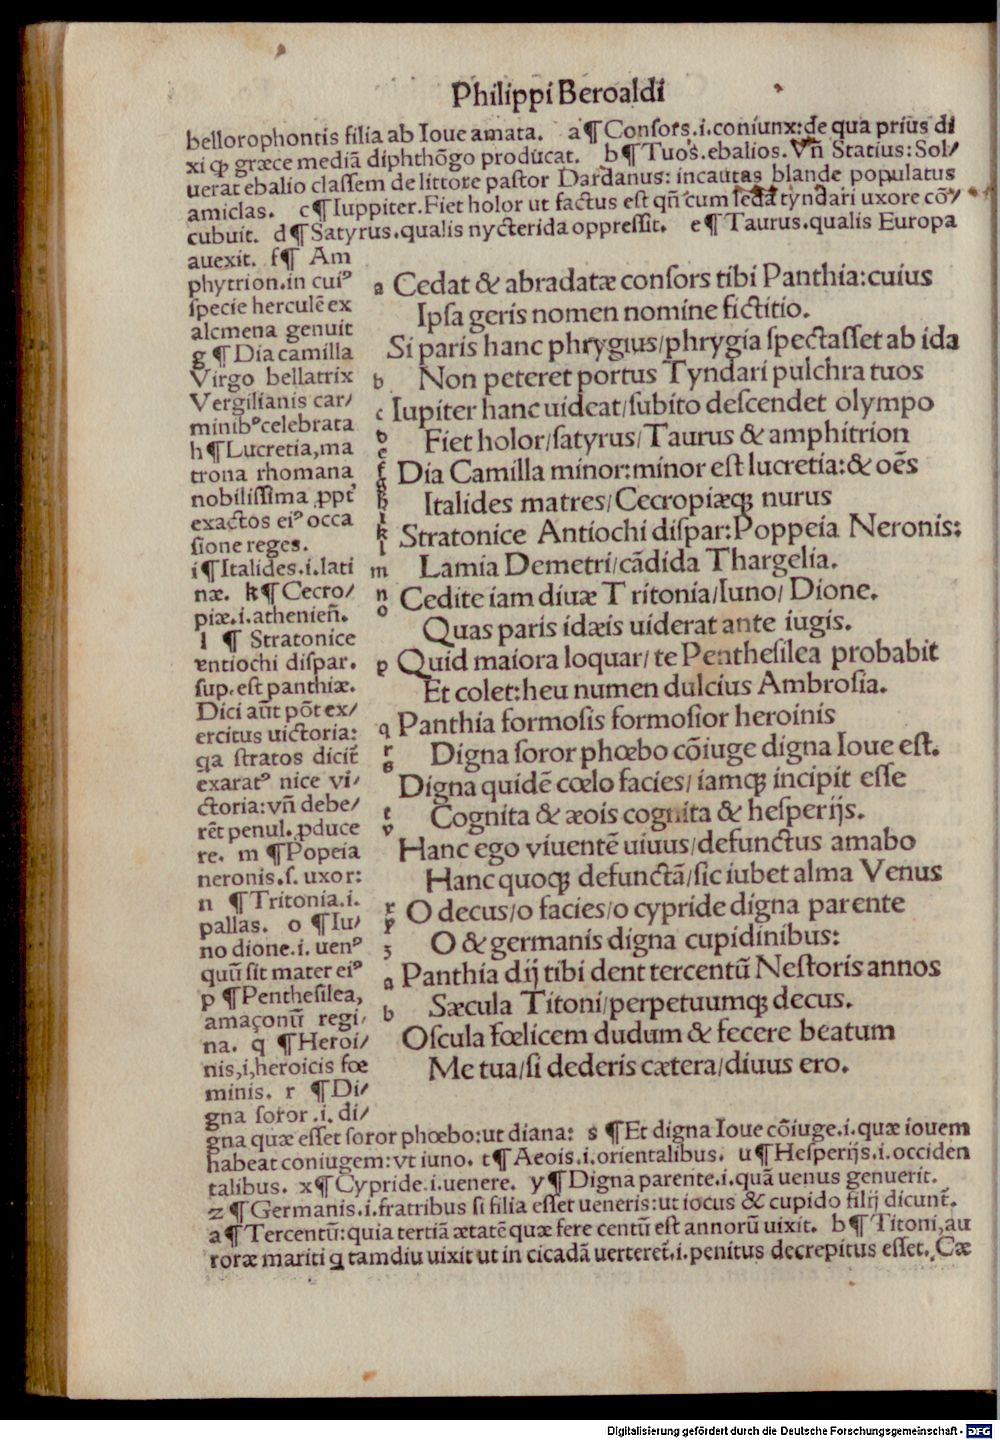 Philippi Beroaldi
bellorophontis filia ab Ioue amata. a¶Consors.i.coniunx:de qua prius di
xi ꝙ græce mediā diphthōgo producat. b¶Tuos.ebalios.Vñ Statius:Sol/
uerat ebalio classem de littore pastor Dardanus: incautas blande populatus
amiclas. c¶Iuppiter.Fiet holor ut factus est qñ cum leda tyndari uxore cō/
cubuit. d¶Satyrus.qualis nycterida oppressit. e¶Taurus.qualis Europa
auexit. f¶ Am
phytrion.in cuiꝰ
specie herculē ex
alcmena genuit
g ¶Dia camilla
Virgo bellatrix
Vergilianis car/
minibꝰcelebrata
h¶Lucretia,ma
trona rhomana
nobilissima ꝓpt᾽
exactos eiꝰ occa
sione reges.
i¶Italides.i.lati
næ. k¶Cecro/
piæ.i.athenieñ.
l ¶ Stratonice
entiochi dispar.
sup.est panthiæ.
Dici aūt pōt ex/
ercitus uictoria:
qa stratos dicit̄
exaratꝰ nice vi/
ctoria:vñ debe/
rēt penul.ꝓduce
re. m ¶Popeia
neronis.s.uxor:
n ¶Tritonia.i.
pallas. o ¶Iu/
no dione.i.uenꝰ
quū sit mater eiꝰ
p ¶Penthesilea,
amaçonū regi/
na. q ¶Heroi/
nis,i,heroicis fœ
minis. r ¶Di/
gna soror.i.di/
a Cedat & abradatæ consors tibi Panthia:cuius
Ipsa geris nomen nomine fictitio.
Si paris hanc phrygius/phrygia spectasset ab ida
b Non peteret portus Tyndari pulchra tuos
c Iupiter hanc uideat/subito descendet olympo
d e Fiet holor/satyrus/Taurus & amphitrion
f g Dia Camilla minor:minor est lucretia:& oēs
h i Italides matres/Cecropiæqꝫ nurus
k l Stratonice Antiochi dispar:Poppeia Neronis:
m Lamia Demetri/cādida Thargelia.
n o Cedite iam diuæ Tritonia/Iuno/Dione.
Quas paris idæis uiderat ante iugis.
p Quid maiora loquar/te Penthesilea probabit
Et colet:heu numen dulcius Ambrosia.
q Panthia formosis formosior heroinis
r s Digna soror phœbo cōiuge digna Ioue est.
Digna quidē cœlo facies/iamqꝫ incipit esse
t v Cognita & æois cognita & hesperijs.
Hanc ego viuentē uiuus/defunctus amabo
Hanc quoqꝫ defunctā/sic iubet alma Venus
x y O decus/o facies/o cypride digna parente
z O & germanis digna cupidinibus:
a Panthia dij tibi dent tercentū Nestoris annos
b Sæcula Titoni/perpetuumqꝫ decus.
Oscula fœlicem dudum & fecere beatum
Me tua/si dederis cætera/diuus ero.
gna quæ esset soror phœbo:ut diana: s ¶Et digna Ioue cōiuge.i.quæ iouem
habeat coniugem:vt iuno. t¶Aeois.i.orientalibus. u¶Hesperijs.i.occiden
talibus. x¶Cypride.i.uenere. y¶Digna parente.i.quā uenus genuerit.
z¶Germanis.i.fratribus si filia esset ueneris:ut iocus & cupido filij dicunt̄.
a¶Tercentū:quia tertiā ætatē quæ fere centū est annorū uixit. b¶Titoni,au
roræ mariti q tamdiu uixit ut in cicadā uerteret̄.i.penitus decrepitus esset. Cæ
Digitalisierung gefördert durch die Deutsche Forschungsgemeinschaft - DFG